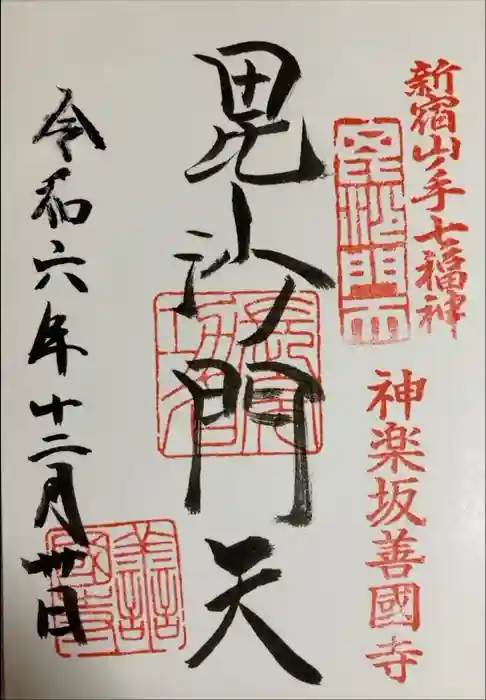 新宿山ノ手七福神
神楽坂善國寺
毘沙門天
令和六年十二月廿日